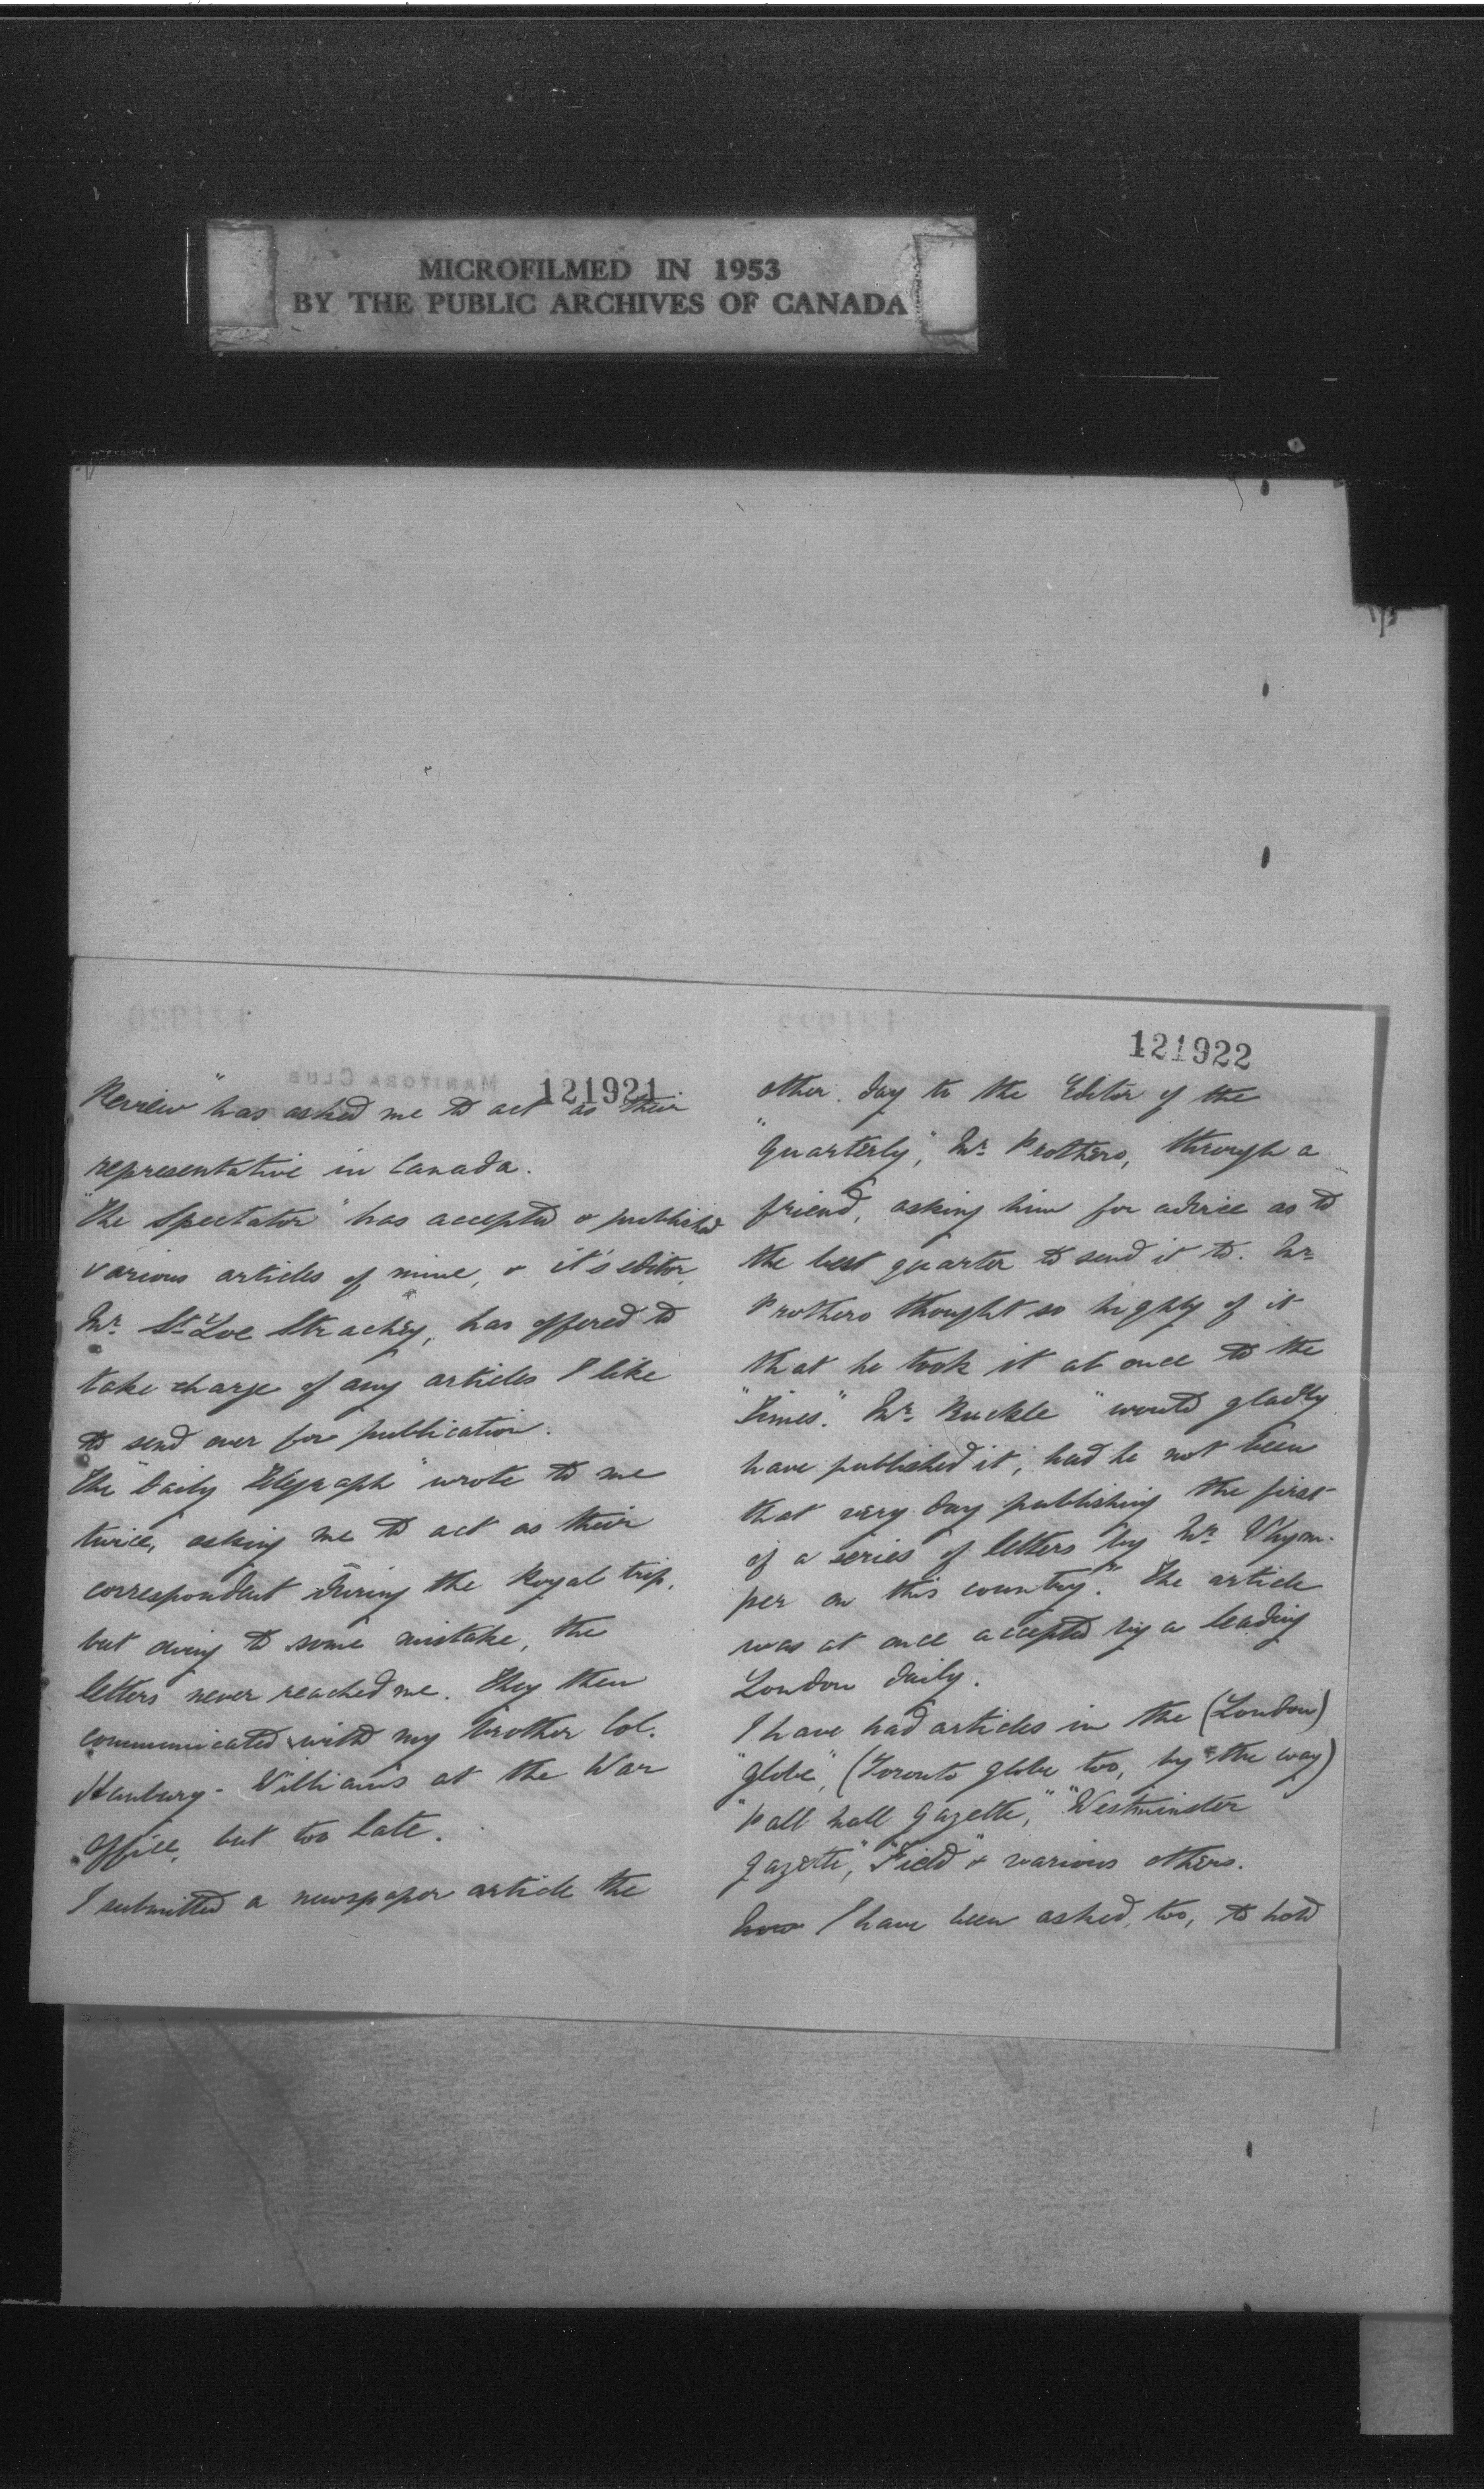 MICROFILMED IN 1953
BY THE PUBLIC ARCHIVES OF CANADA
MANITOBA CLUB
121921
Review" has asked me to act as their
representative in Canada.
"The Spectator" has accepted & published
various articles of mine, & it's editor,
Mr. St. Loe Strachey, has offered to
take charge of any articles I like
to send over for publication.
The "Daily Telegraph" wrote to me
twice, asking me to act as their
correspondent during the Royal trip,
but owing to some mistake, the
letters never reached me. They then
communicated with my brother Col.
Hanbury-Williams at the War
Office, but too late.
I submitted a newspaper article the
121922
other day to the Editor of the
"Quarterly", Mr. Prothero, through a
friend, asking him for advice as to
the best quarter to send it to. Mr.
Prothero thought so highly of it
that he took it at once to the
"Times." Mr. Buckle "would gladly
have published it, had he not been
that very day publishing the first
of a series of letters by Mr. Whym-
per on this country." The article
was at once accepted by a leading
London daily.
I have had articles in the (London)
"Globe", (Toronto Globe too, by the way)
"Pall Mall Gazette," "Westminster
Gazette", "Field" & various others.
I have been asked, too, to hold